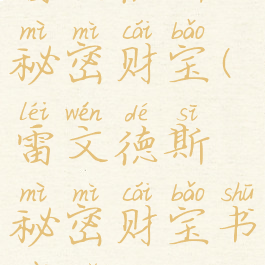 mì mì cái bǎo
秘密财宝(
léi wén dé sī
雷文德斯
mì mì cái bǎo shū
秘密财宝书